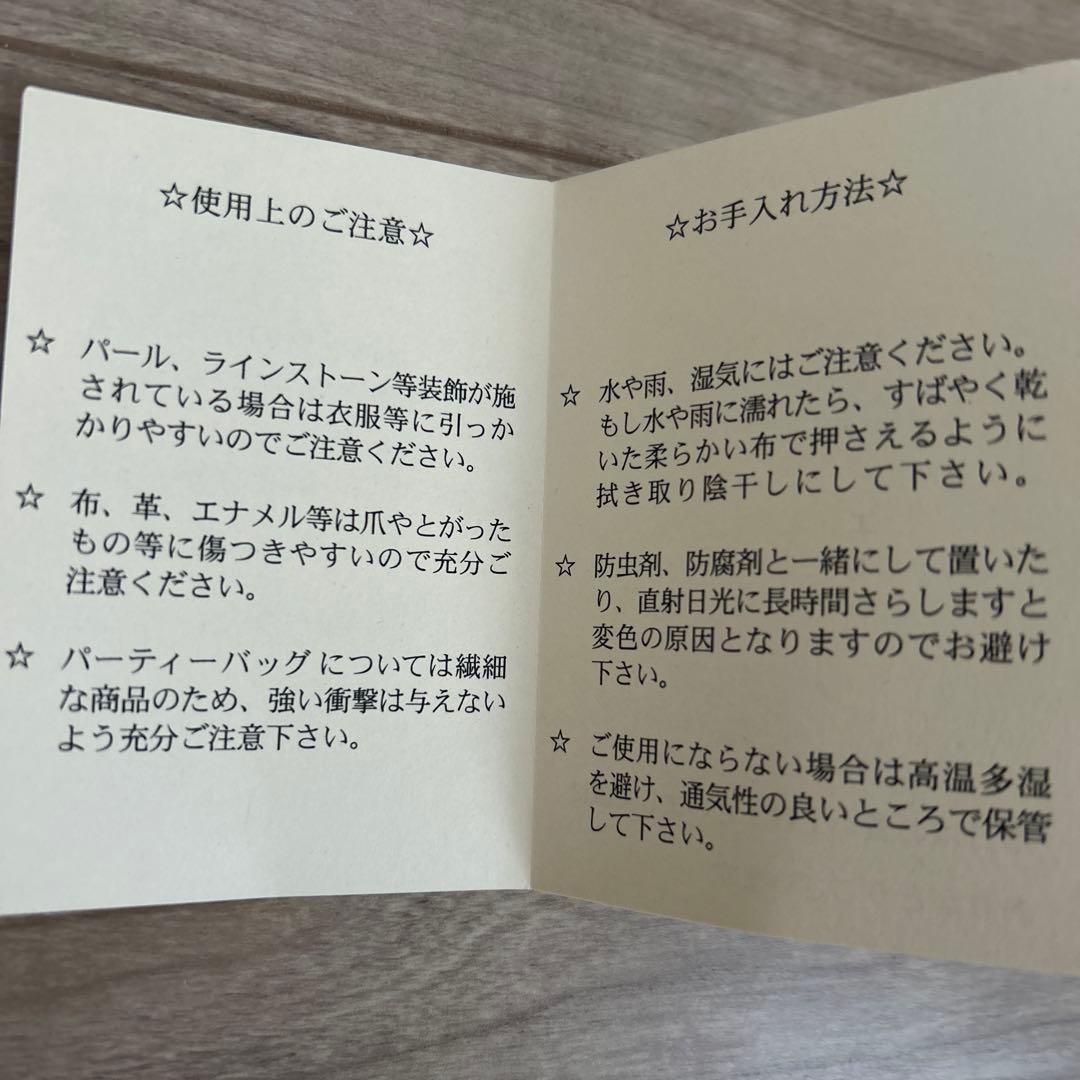 ☆使用上のご注意☆
☆ パール、ラインストーン等装飾が施
されている場合は衣服等に引っか
かりやすいのでご注意ください。
☆ 布、革、エナメル等は爪やとがった
もの等に傷つきやすいので充分ご
注意ください。
☆ パーティーバッグについては繊細
な商品のため、強い衝撃は与えない
よう充分ご注意下さい。
☆お手入れ方法☆
☆ 水や雨、湿気にはご注意ください。
もし水や雨に濡れたら、すばやく乾
いた柔らかい布で押さえるように
拭き取り陰干しにして下さい。
☆ 防虫剤、防腐剤と一緒にして置いた
り、直射日光に長時間さらしますと
変色の原因となりますのでお避け
下さい。
☆ ご使用にならない場合は高温多湿
を避け、通気性の良いところで保管
して下さい。